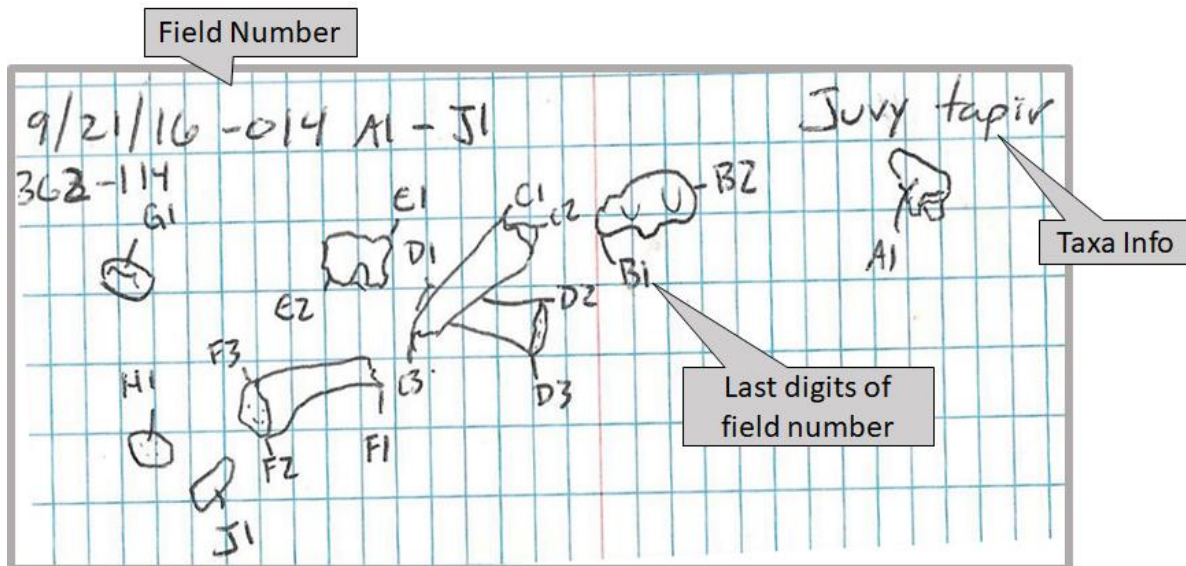 Field Number
9/21/16 -014 A1 - J1
Juvy tapir
362-114
G1
E1
C1
C2
B2
D1
Taxa Info
A1
B1
E2
D2
F3
C3
D3
H1
Last digits of
field number
F1
F2
J1